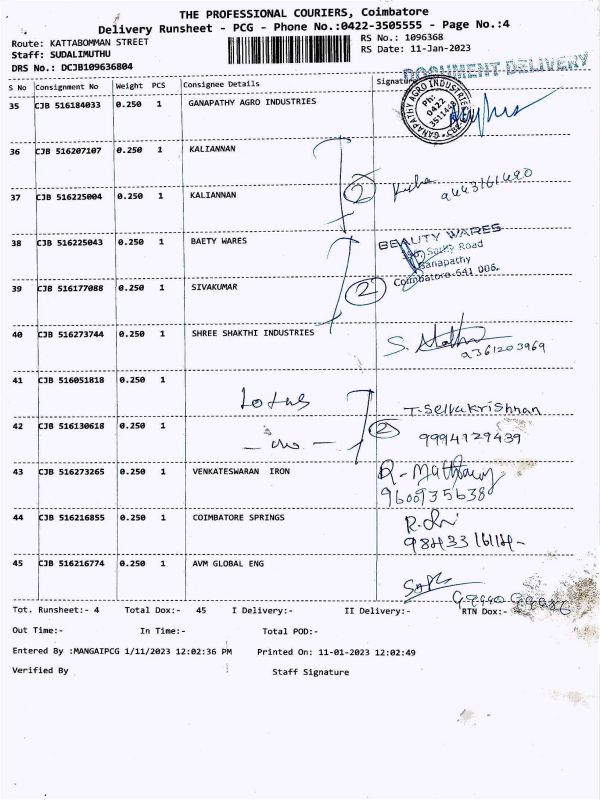 THE PROFESSIONAL COURIERS, Coimbatore
Delivery Runsheet - PCG - Phone No.:0422-3505555 - Page No.:4
Route: KATTABOMMAN STREET
RS No.: 1096368
Staff: SUDALIMUTHU
RS Date: 11-Jan-2023
DRS No.: DCJB109636804
DOCUMENT DELIVERY
S No Consignment No Weight PCS Consignee Details Signature
35 CJB 516184033 0.250 1 GANAPATHY AGRO INDUSTRIES
GANAPATHY AGRO INDUSTRIES
Ph:
0422
36 CJB 516207107 0.250 1 KALIANNAN
2
37 CJB 516225004 0.250 1 KALIANNAN
38 CJB 516225043 0.250 1 BAETY WARES
BEAUTY WARES
Sathy Road
Ganapathy
Coimbatore-641 006.
39 CJB 516177088 0.250 1 SIVAKUMAR
2
40 CJB 516273744 0.250 1 SHREE SHAKTHI INDUSTRIES
9361203969
41 CJB 516051818 0.250 1
Lotus
T. Selvakrishnan
42 CJB 516130618 0.250 1
2
9994129439
43 CJB 516273265 0.250 1 VENKATESWARAN IRON
9600935638
44 CJB 516216855 0.250 1 COIMBATORE SPRINGS
45 CJB 516216774 0.250 1 AVM GLOBAL ENG
Tot. Runsheet:- 4 Total Dox:- 45 I Delivery:- II Delivery:- RTN Dox:-
Out Time:- In Time:- Total POD:-
Entered By :MANGAIPCG 1/11/2023 12:02:36 PM Printed On: 11-01-2023 12:02:49
Verified By Staff Signature